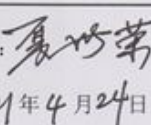 : 夏世荣
1年4月24日